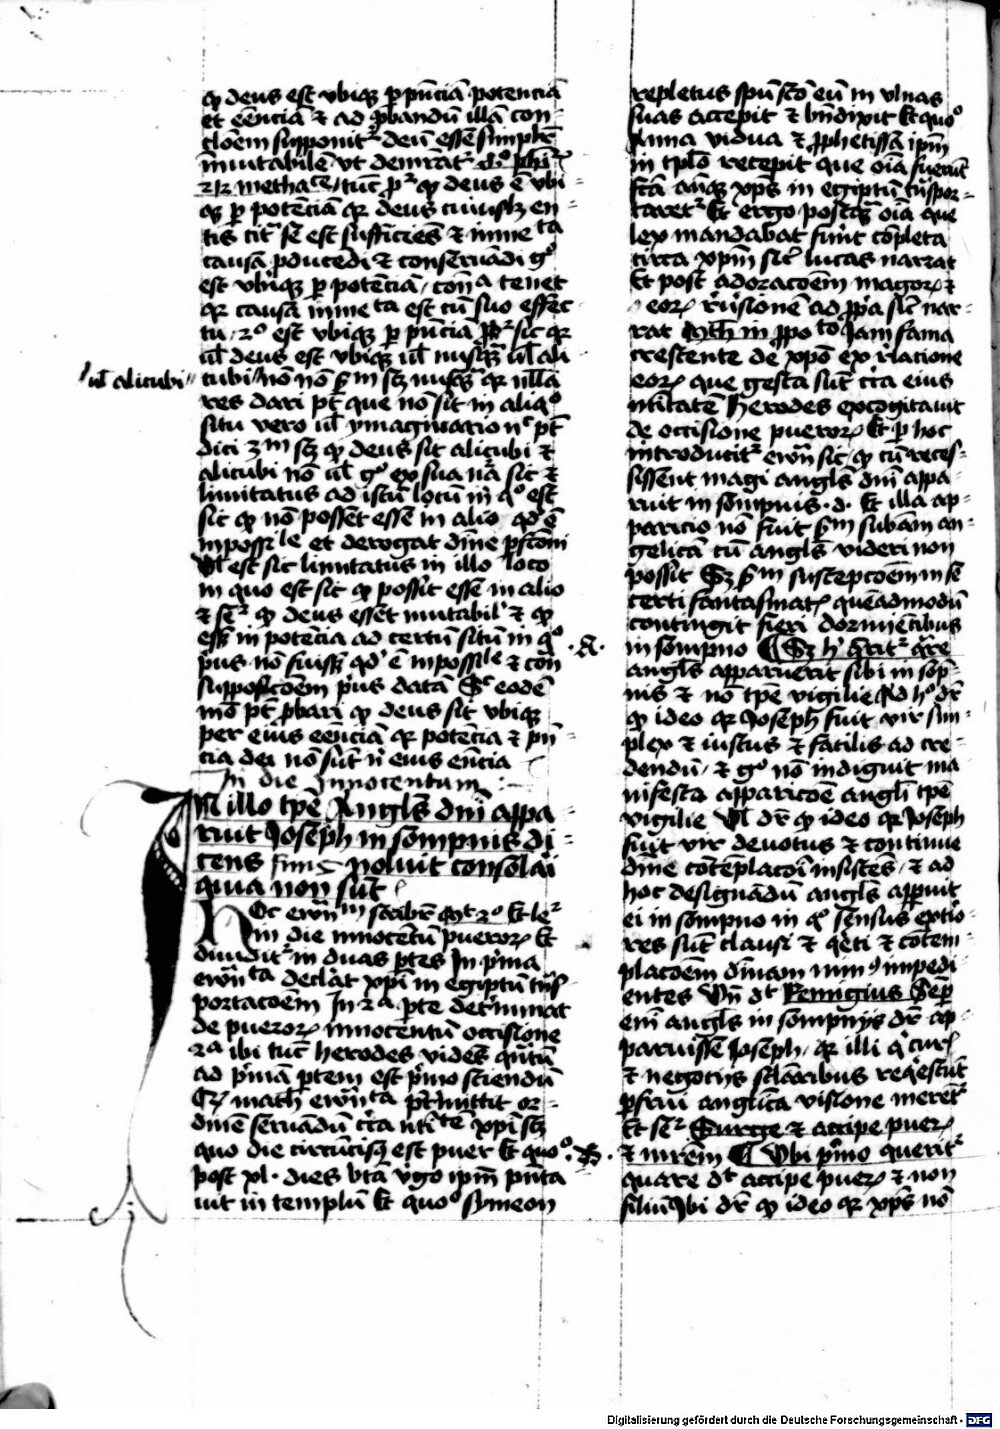 qͥ deus est vbiqꝫ ꝑ pn̄ciā potenciā
et eēnciā ⁊ ad ꝓbandū illā con
cl̄oēm supponitͬ deū esse simplr̄
īmutabilē vt demr̄atͬ
methaᶜᵉ tūc pꝫ qͥ deus ē vbi
qꝫ ꝑ potēciā qꝛ deus cuiuslꝫ en
tis cit͛ se est sufficiēs ⁊ īmeᵗᵃ
causā ꝓducēdi ⁊ conseruādi gͦ
est vbiqꝫ ꝑ potēciā conᵃ tenet
qꝛ causā īmeᵗᵃ est cū suo effec
tu 2º est vbiqꝫ ꝑ pn̄ciā sic qꝛ
ul̄ deus est vbiqꝫ ul̄ nusqꝫ ul̄ ali
ul̄ alicubi
cubi nō nō sᵐ scꝫ nusqꝫ qꝛ nll̄a
res dari pt̄ que nō sit in aliqͦ
situ vero ul̄ ymaginario nᶜ pt̄
dici 3ᵐ scꝫ qͥ deus sit alicubi ⁊
alicubi nō ul̄ gͦ ex sua nā sic ⁊
limitatus ad istū locū in qͦ est
sic qͥ nō possēt esse in alio qd̄ ē
inpossiˡᵉ et derogat dīne ꝑfcōni
Ul̄ est sic limitatus in illo loco
in quo est sic qͥ possit esse in alio
⁊ seͬ qͥ deus essēt mutabil͛ ⁊ qͥ
esset in potēcia ad certū situ in qͦ
pͥus nō fuisset qd̄ ē inpossiˡᵉ ⁊ con
supposicōem pͥus datā Sᶜ eodē
mō pt̄ ꝓbari qͥ deus sit vbiqꝫ
per eius eēnciā qꝛ potēcia ⁊ pn̄
cia dei nō sūt nͥ eius eēncia
In die Innocentum
In illo tꝑe Angl̄s dn̄i appa
ruit Joseph in sompnis di
cens finis Noluit consolāi
quia non sūt
Hoc ewᵐ scribit͛ mᵗ 2º Et leͬ
in die innocētū pueroꝝ Et
diuiditͬ in duas ꝑtes In pͥma
ewᵗᵃ declāt xp̄i in egiptū tn̄s
portacoēm In 2ᵃ ꝑte determinat
de pueroꝝ innocentū occisione
2ᵃ ibi tūc herodes vidēs qm̄tū
ad pͥmā ꝑtem est pͥmo sciendū
qͥ math̄ ewᵗᵃ pͬmittit or
dinē seruādū cͥca ntiᵗᵉ̄ xp̄i scꝫ
quo die circūcisꝫ est puer Et quoº
post xl · dies btā vͥgo ip̄m pn̄ta
uit in templū Et quoº symeon
repletus spū sc̄o eū in vlnas
suas accepit ⁊ bn̄dixit Et quoº
Anna vidua ⁊ ꝓphetissa ip̄m
in tp̄lo recepit que oīa fuerūt
fc̄a an̄qꝫ xp̄s in egiptū tn̄spor
taretͬ Et ergo postqꝫ oīa que
lex mandabat fuīt cōpleta
circa xp̄m sicͬ lucas narrat
Et post adoracoēm magoꝝ ⁊
eoꝝ rͥuīsionē ad ꝓpͥa sicͬ nar
rat math̄ in ꝓpoᵗᵒ Jam fama
crescente de xpō ex rͥlacione
eoꝝ que gesta sūt cͥca eius
ntitatē Herodes excogitauit
de occisione pueroꝝ Et ꝑ hoc
introducitͬ ewm̄ sic qͥ cū reces
sissent magi angl̄s dn̄i appa
ruit in sompnis · d · Et illa ap
paricio nō fuit sᵐ subām an
gelicā cū angl̄s videri non
possit Sꝫ sᵐ suscepcōem in se
certi fantasmatꝭ quēadmodū
contingit fieri dormiētibus
· A ·
in sompno ¶ Sꝫ hͥ q̄ritͬ q̄re
angl̄s apparuerit sibi in sōp
nis ⁊ nō tꝑe vigilie Ad hº dr̄
qͥ ideo qꝛ Joseph fuit vir sim
plex ⁊ iustus ⁊ facilis ad cre
dendū ⁊ gͦ nō indiguit ma
nifesta apparicōe angli tꝑe
vigilie Ul̄ dr̄ qͥ ideo qꝛ Joseph
fuit vir deuotus ⁊ continue
dīne cōtēplacōi insistēs ⁊ ad
hoc designādū angl̄s appuit
ei in sompno in qͦ sensus extͥo
res sūt clausi ⁊ q̄eti ⁊ cōtem
placoēm dīnam nimꝰ impedi
entes Vn̄ dᵗ Remigius Seꝑ
enī angl̄s in sompnijs dr̄ ap
paruisse Joseph qꝛ illi qͥ curꝭ
⁊ negotijs sclāribus reqͥescūt
ꝑfrui anglīca visione meretͬ
Et seͬ Surge ⁊ accipe pueꝝ
· B ·
⁊ mr̄em ¶ Ubi pͥmo queritͬ
quare dᵗ accipe pueꝝ ⁊ non
filiū Ibi dr̄ qͥ ideo qꝛ xp̄s nō
Digitalisierung gefördert durch die Deutsche Forschungsgemeinschaft - DFG